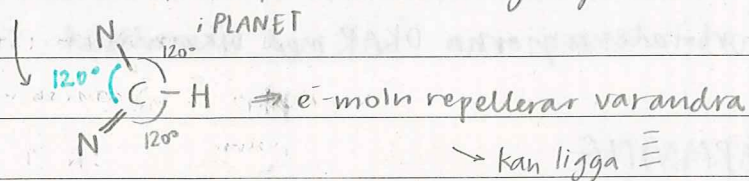 i PLANET
N
120°
120° C - H ⇒ e⁻-moln repellerar varandra
N 120°
→ kan ligga